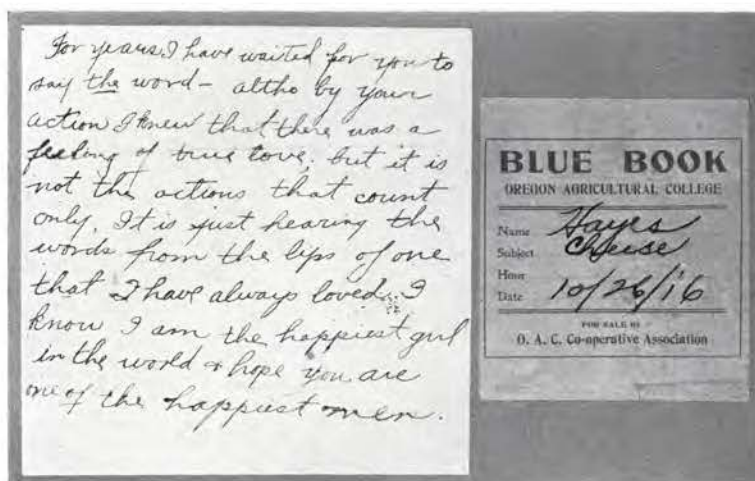 For years I have waited for you to
say the word - altho by your
action I knew that there was a
feeling of true love. but it is
not the actions that count
only. It is just hearing the
words from the lips of one
that I have always loved. I
know I am the happiest girl
in the world & hope you are
one of the happiest men.
BLUE BOOK
OREGON AGRICULTURAL COLLEGE
Name Hayes
Subject Cheese
Hour
Date 10/26/'16
FOR SALE BY
O. A. C. Co-operative Association